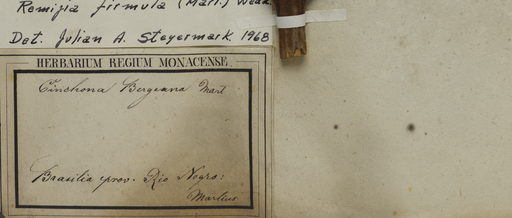 Remijia firmula (Mart.) Wedd.
Det. Julian A. Steyermark 1968
HERBARIUM REGIUM MONACENSE
Cinchona Bergeana Mart
Brasilia prov. Rio Negro:
Martius